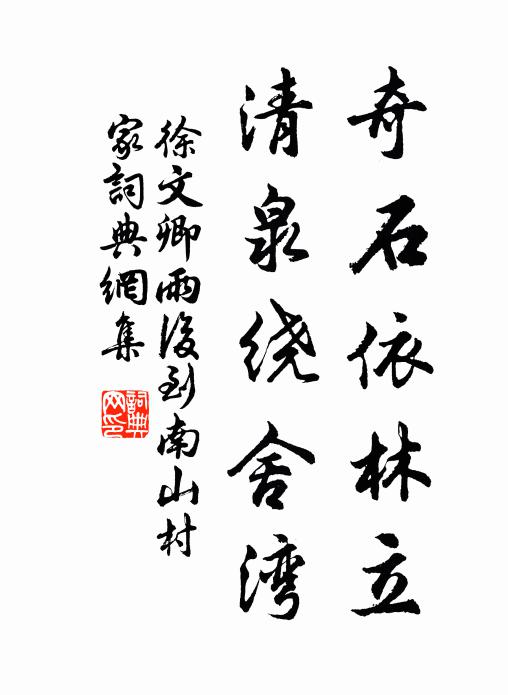 奇石依林立
清泉绕舍湾
徐文卿雨後到南山村
家詞典網集
詞典
网印